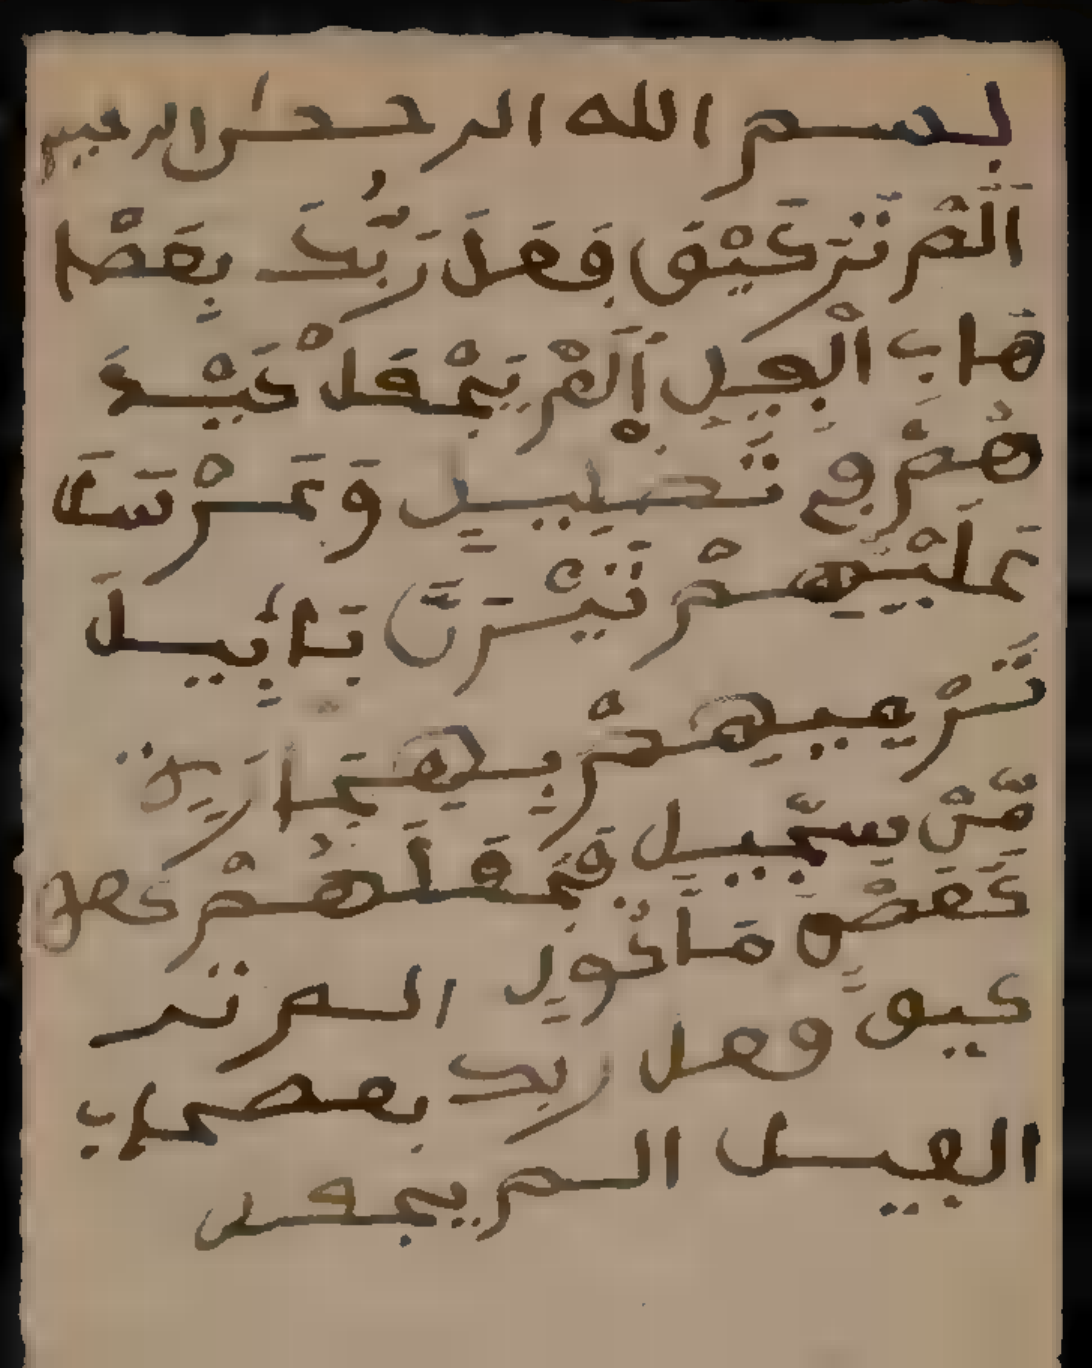 بسم الله الرحمن الرحيم
اَلَمْ تَرَ كَيْفَ فَعَلَ رَبُّكَ بِعَصْا
هَابِ الْفِيلِ اَلَمْ يَجْعَلْ كَيْدَ
هُمْ فِي تَضْلِيلٍ وَعَرْسَلَ
عَلَيْهِمْ تَيْرَنَ بَائِيلَ
تَرْمِيهِمْ بِهِجَارِةٍ
مِّنْ سِجِّيلٍ فَجَعَلَهُمْ كعص
كَعَصْفٍ مَاكُولٍ الم تر
كيف فعل ربك بعصحاب
الفيل الم يجعل